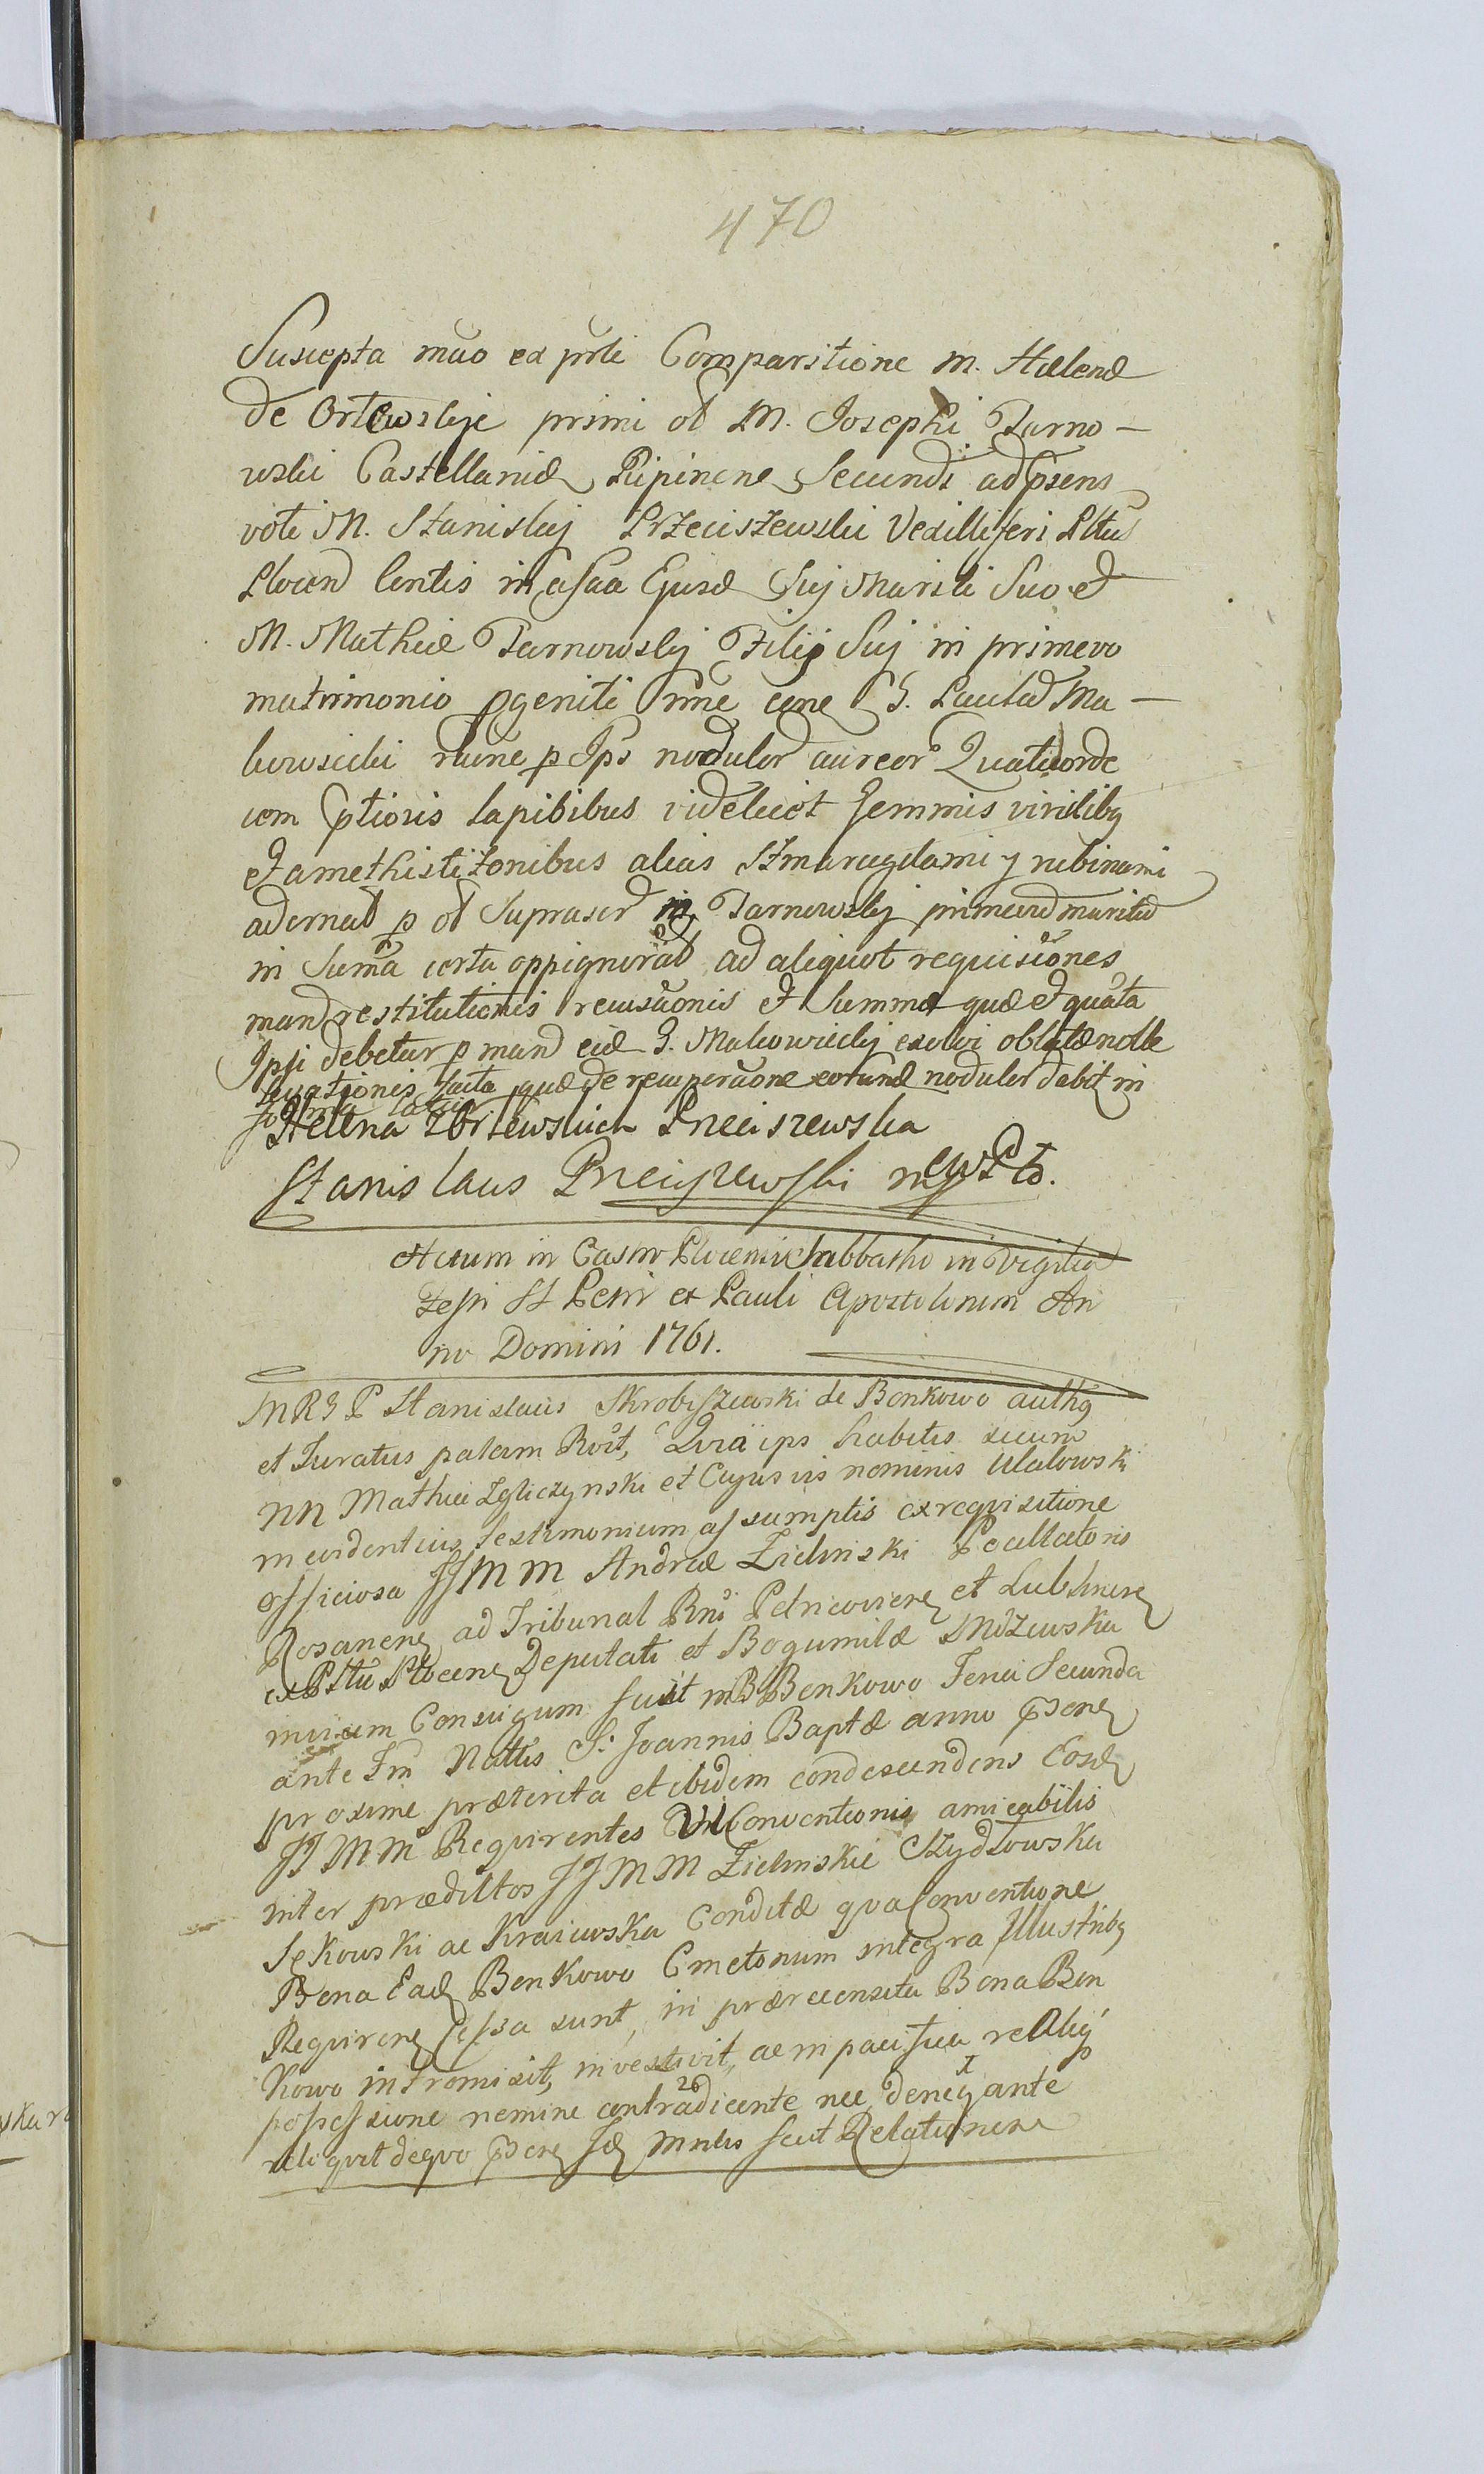 470
Suscepta mũo ex prñti Comparitione M. Helenæ
de Orłewskje primi olỉ M. Josephi Tarno–
wski Castellanidæ Ripinen Secundi ad præsens
voti M. Stanislaj Przeciszewski Vexilliferi Pltus
Plocen in assa Ejusd Suj Mariti Suo et
M. Mathiæ Tarnowskj Filij Suj in primevo
matrimonio pgeniti nne G. Ma–
kowiecki p Ips nodulor aureor Quatuorde
cem ptioris lapibibus videlicet Gemmis viridiby
et amethistizonibus alias Szmaragdami y rubinami
adornat p ol Suprascr M. Tarnowskj primevu maritu
in Suma certa oppignorat ad aliquot requisiones
mand restitutionis recusuonis et Summa quæ et quãta
Ipsi debetur p mand eid G. Makowieckj exolvi oblatæ nolle
levationis facta quæ de recuperuone eorund nodulor dabit in
forma
Helena z Orłewskich Przeciszewska
Stanislaus Przeciszewski
Actum in Castro Plocensi Sabbatho in Vigilia
Festi SS Petri et Pauli Apostolorum An
no Domini 1761.
MRGP Stanislaus Skrobiszewski de Bonkowo authg
et Juratus palam Rvit, Quia ips habitis secum
NN Mathia Zgliczynski et Cujusvis nominis Ulatowski
in evidentius testimonium assumptis ex requisitione
officiosa JJMM Andreæ Zielinski Pocillatoris
Rosanen ad Tribunal Rni Petricovien et Lublinen
ex Pltu Plocen Deputati et Bogumilæ Mdzewska
invicem Conjugum fuit in B Bonkowo Feria Secunda
ante Fm Nattis S. Joannis Baptæ anno
proxime præterita et ibidem condescendens Eosd
JJMM Requirentes Vi Conventionis amicabilis
inter prædittos JJMM Zielinskie Szydłowska
Sękowski ac Kraiewska Conditæ qva Conventione
Bona Ead Bonkowo Cmetonum integra Illustriby
Requiren Cessa sunt, in prærecensita Bona Bon
kowo intromisit, investivit, ac in pacifica reAliq
possessione nemine contradicente nec denegante
26 I
reliquit deqvo Id Mnlis fecit Relationem